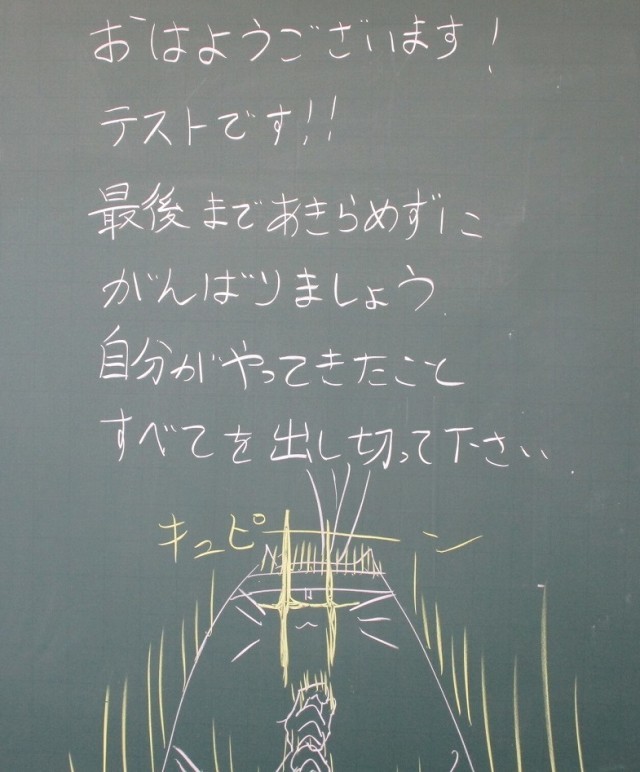 おはようございます!
テストです!!
最後まであきらめずに
がんばりましょう.
自分がやってきたこと
すべてを出し切って下さい.
キュピーン